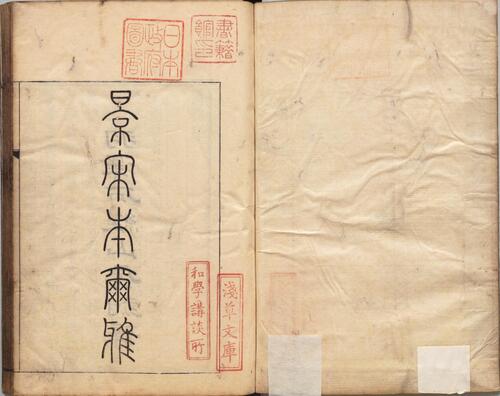 書籍
館印
日本
政府
圖書
景宋本爾雅
淺草文庫
和學講談所